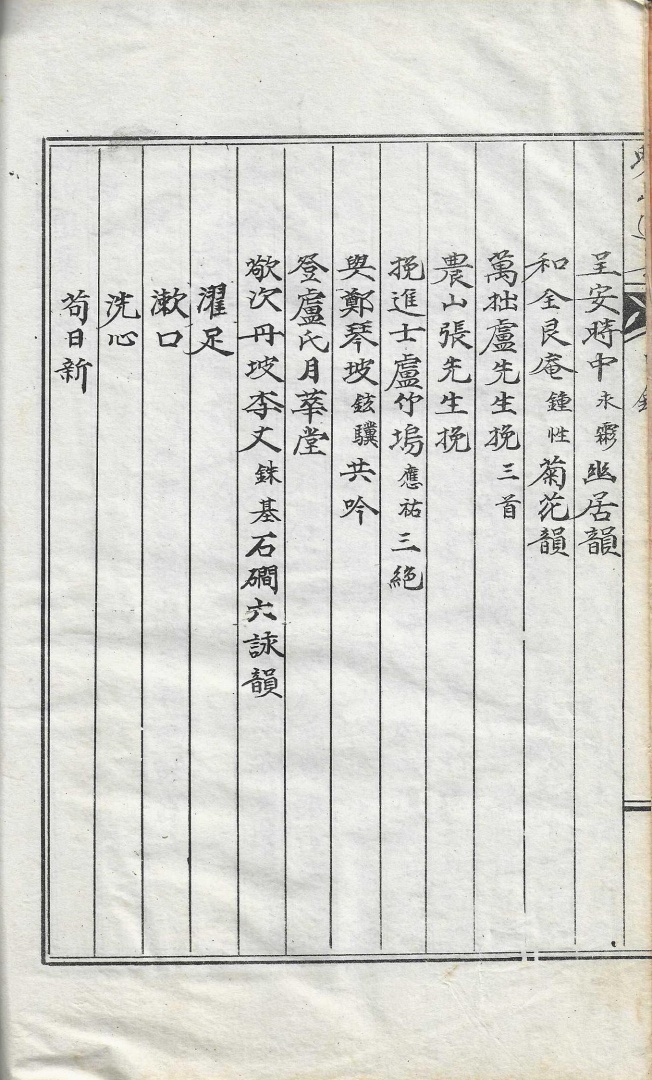 呈安時中永霧幽居韻
和全艮庵鍾性菊花韻
萬拙盧先生挽三首
農山張先生挽
挽進士盧竹塢應祜三絕
與鄭琴坡鉉驥共吟
登盧氏月華堂
敬次丹坡李丈銖基石磵六詠韻
濯足
漱口
洗心
苟日新